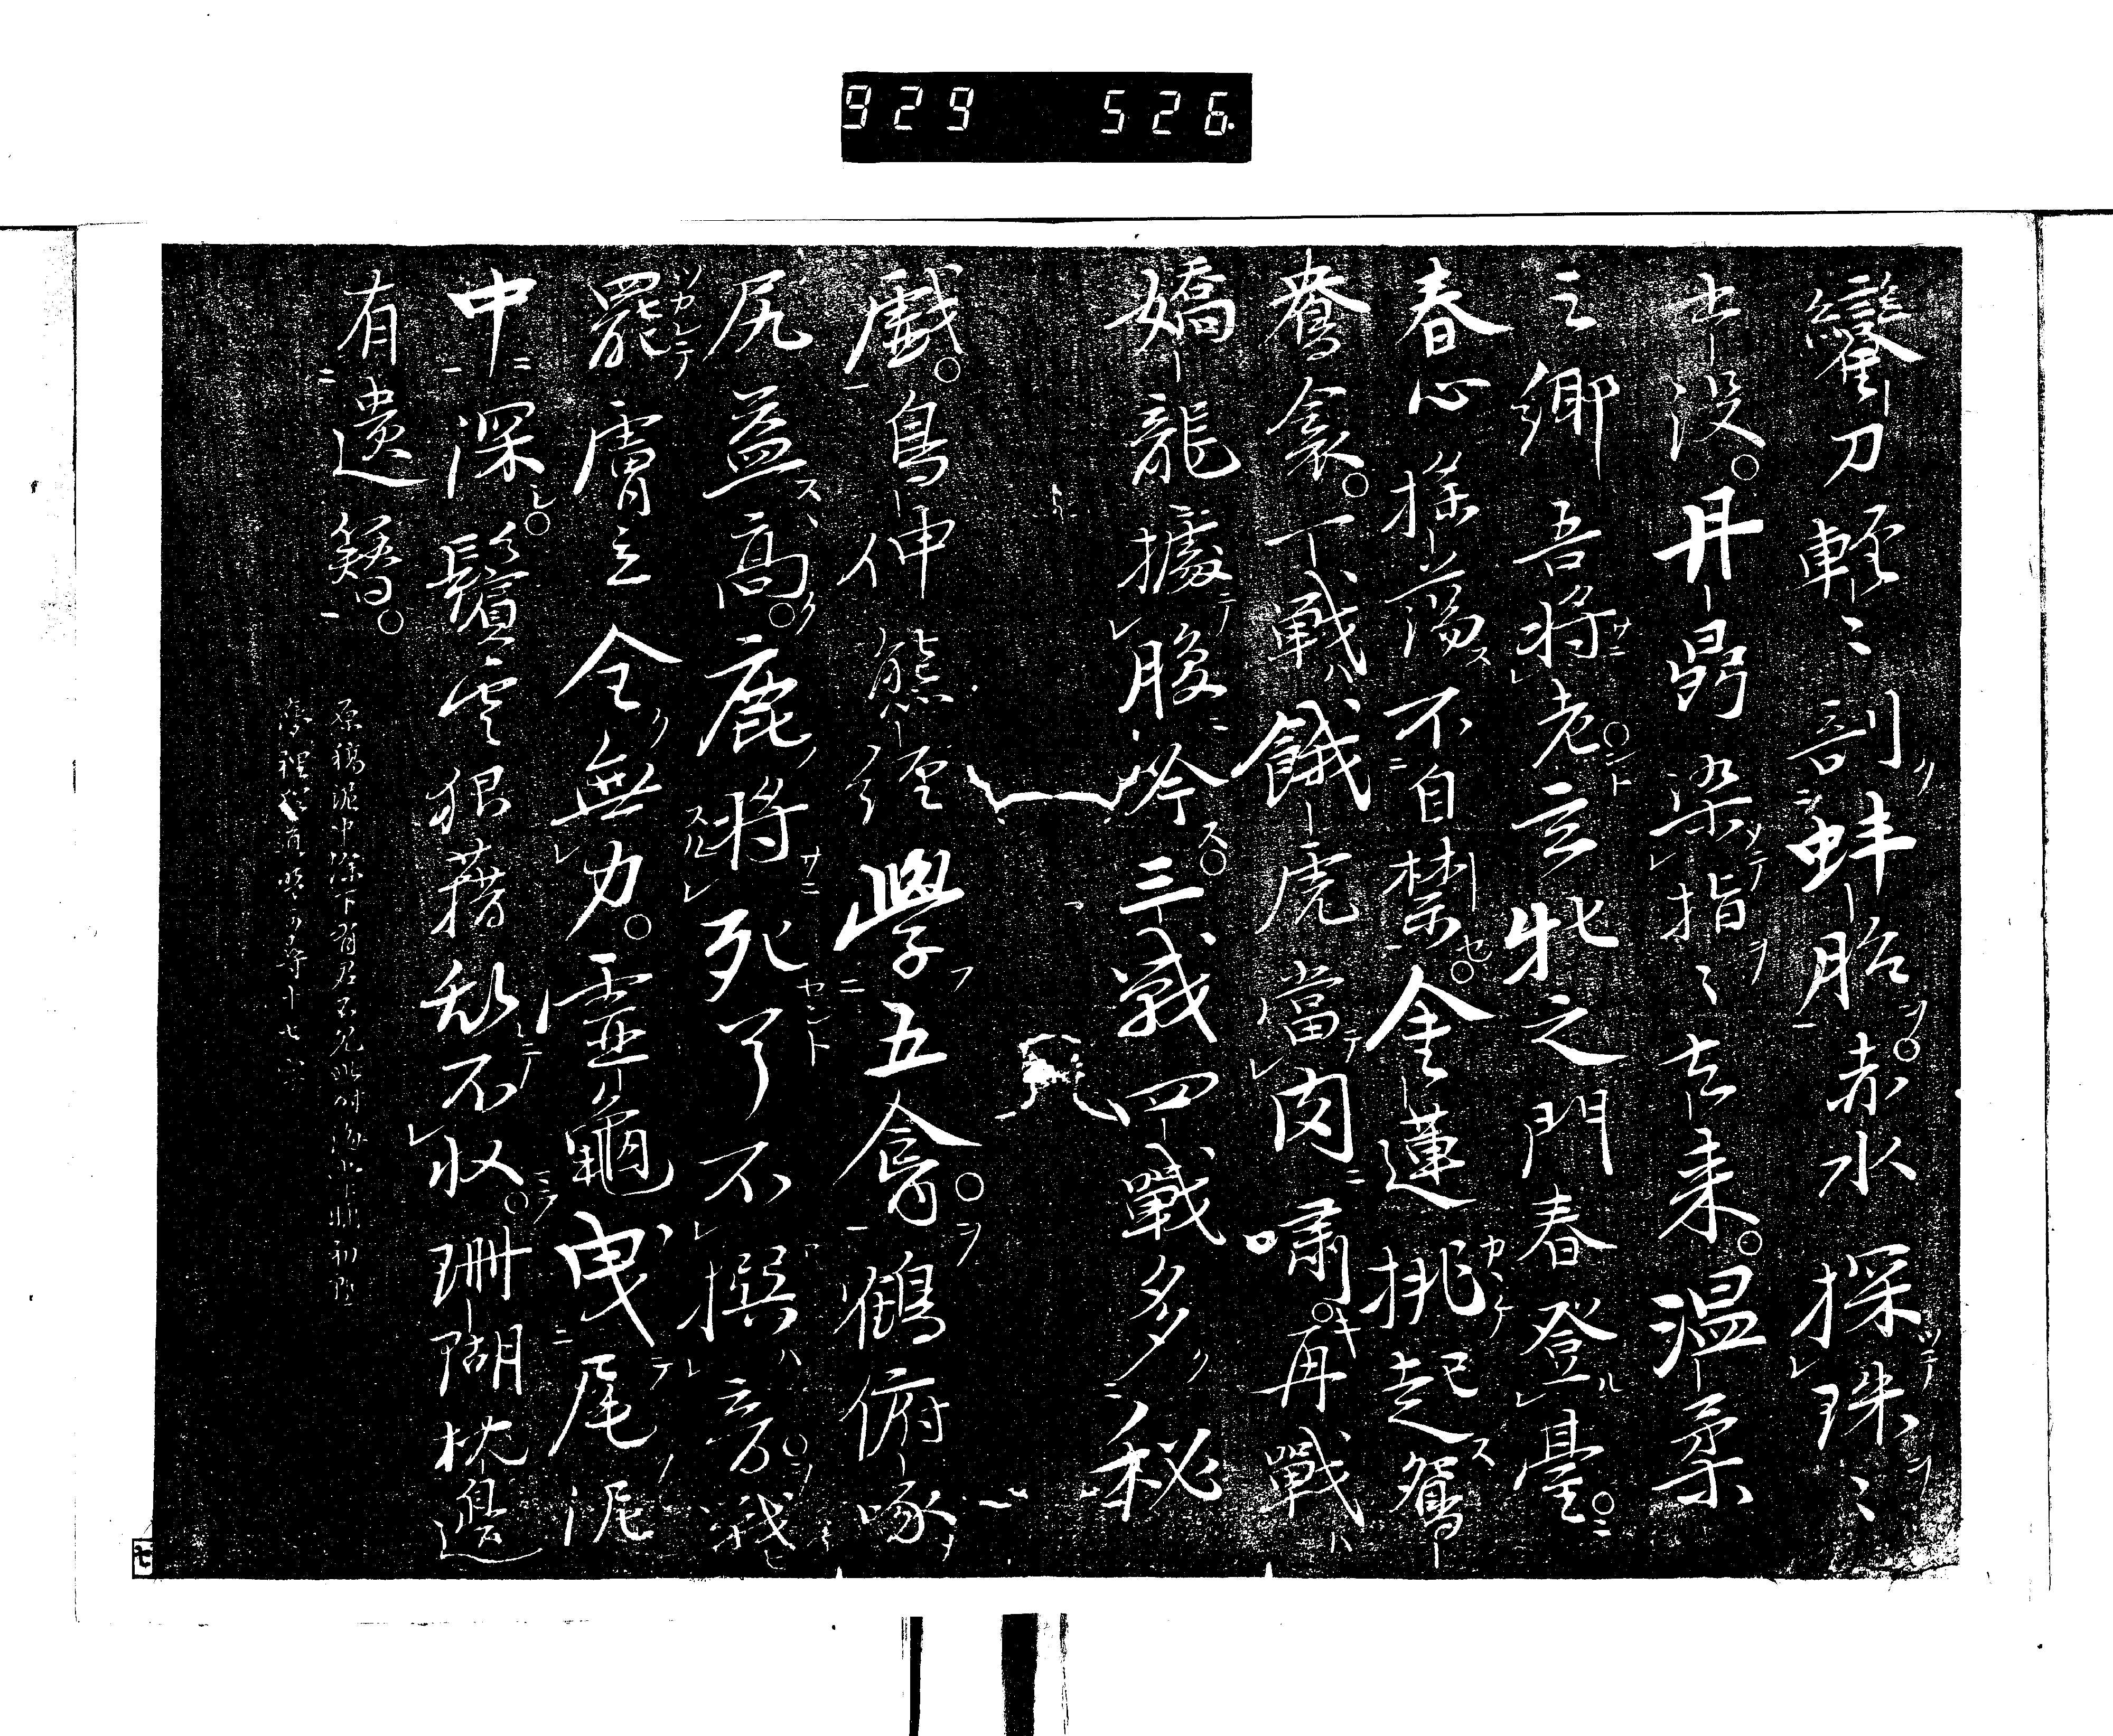 929 526
鸞刀輕〻割蚌胎赤水探珠〻
出沒丹鼎染指〻去来温柔
之鄉吾將老玄牝之門春登臺
春心搖蕩不自禁金蓮挑起鴛
鴦衾一戰餓虎當肉嘯再戰
嬌龍據腹吟三戰四戰多秘
戲鳥伸熊經學五禽鶴俯啄
尻益高鹿將死兮不撰音戰
罷膚立全無力靈龜曳尾泥
中深鬢雲狼藉乱不收珊瑚枕邊
有遺簪
原稿泥中深下有
七